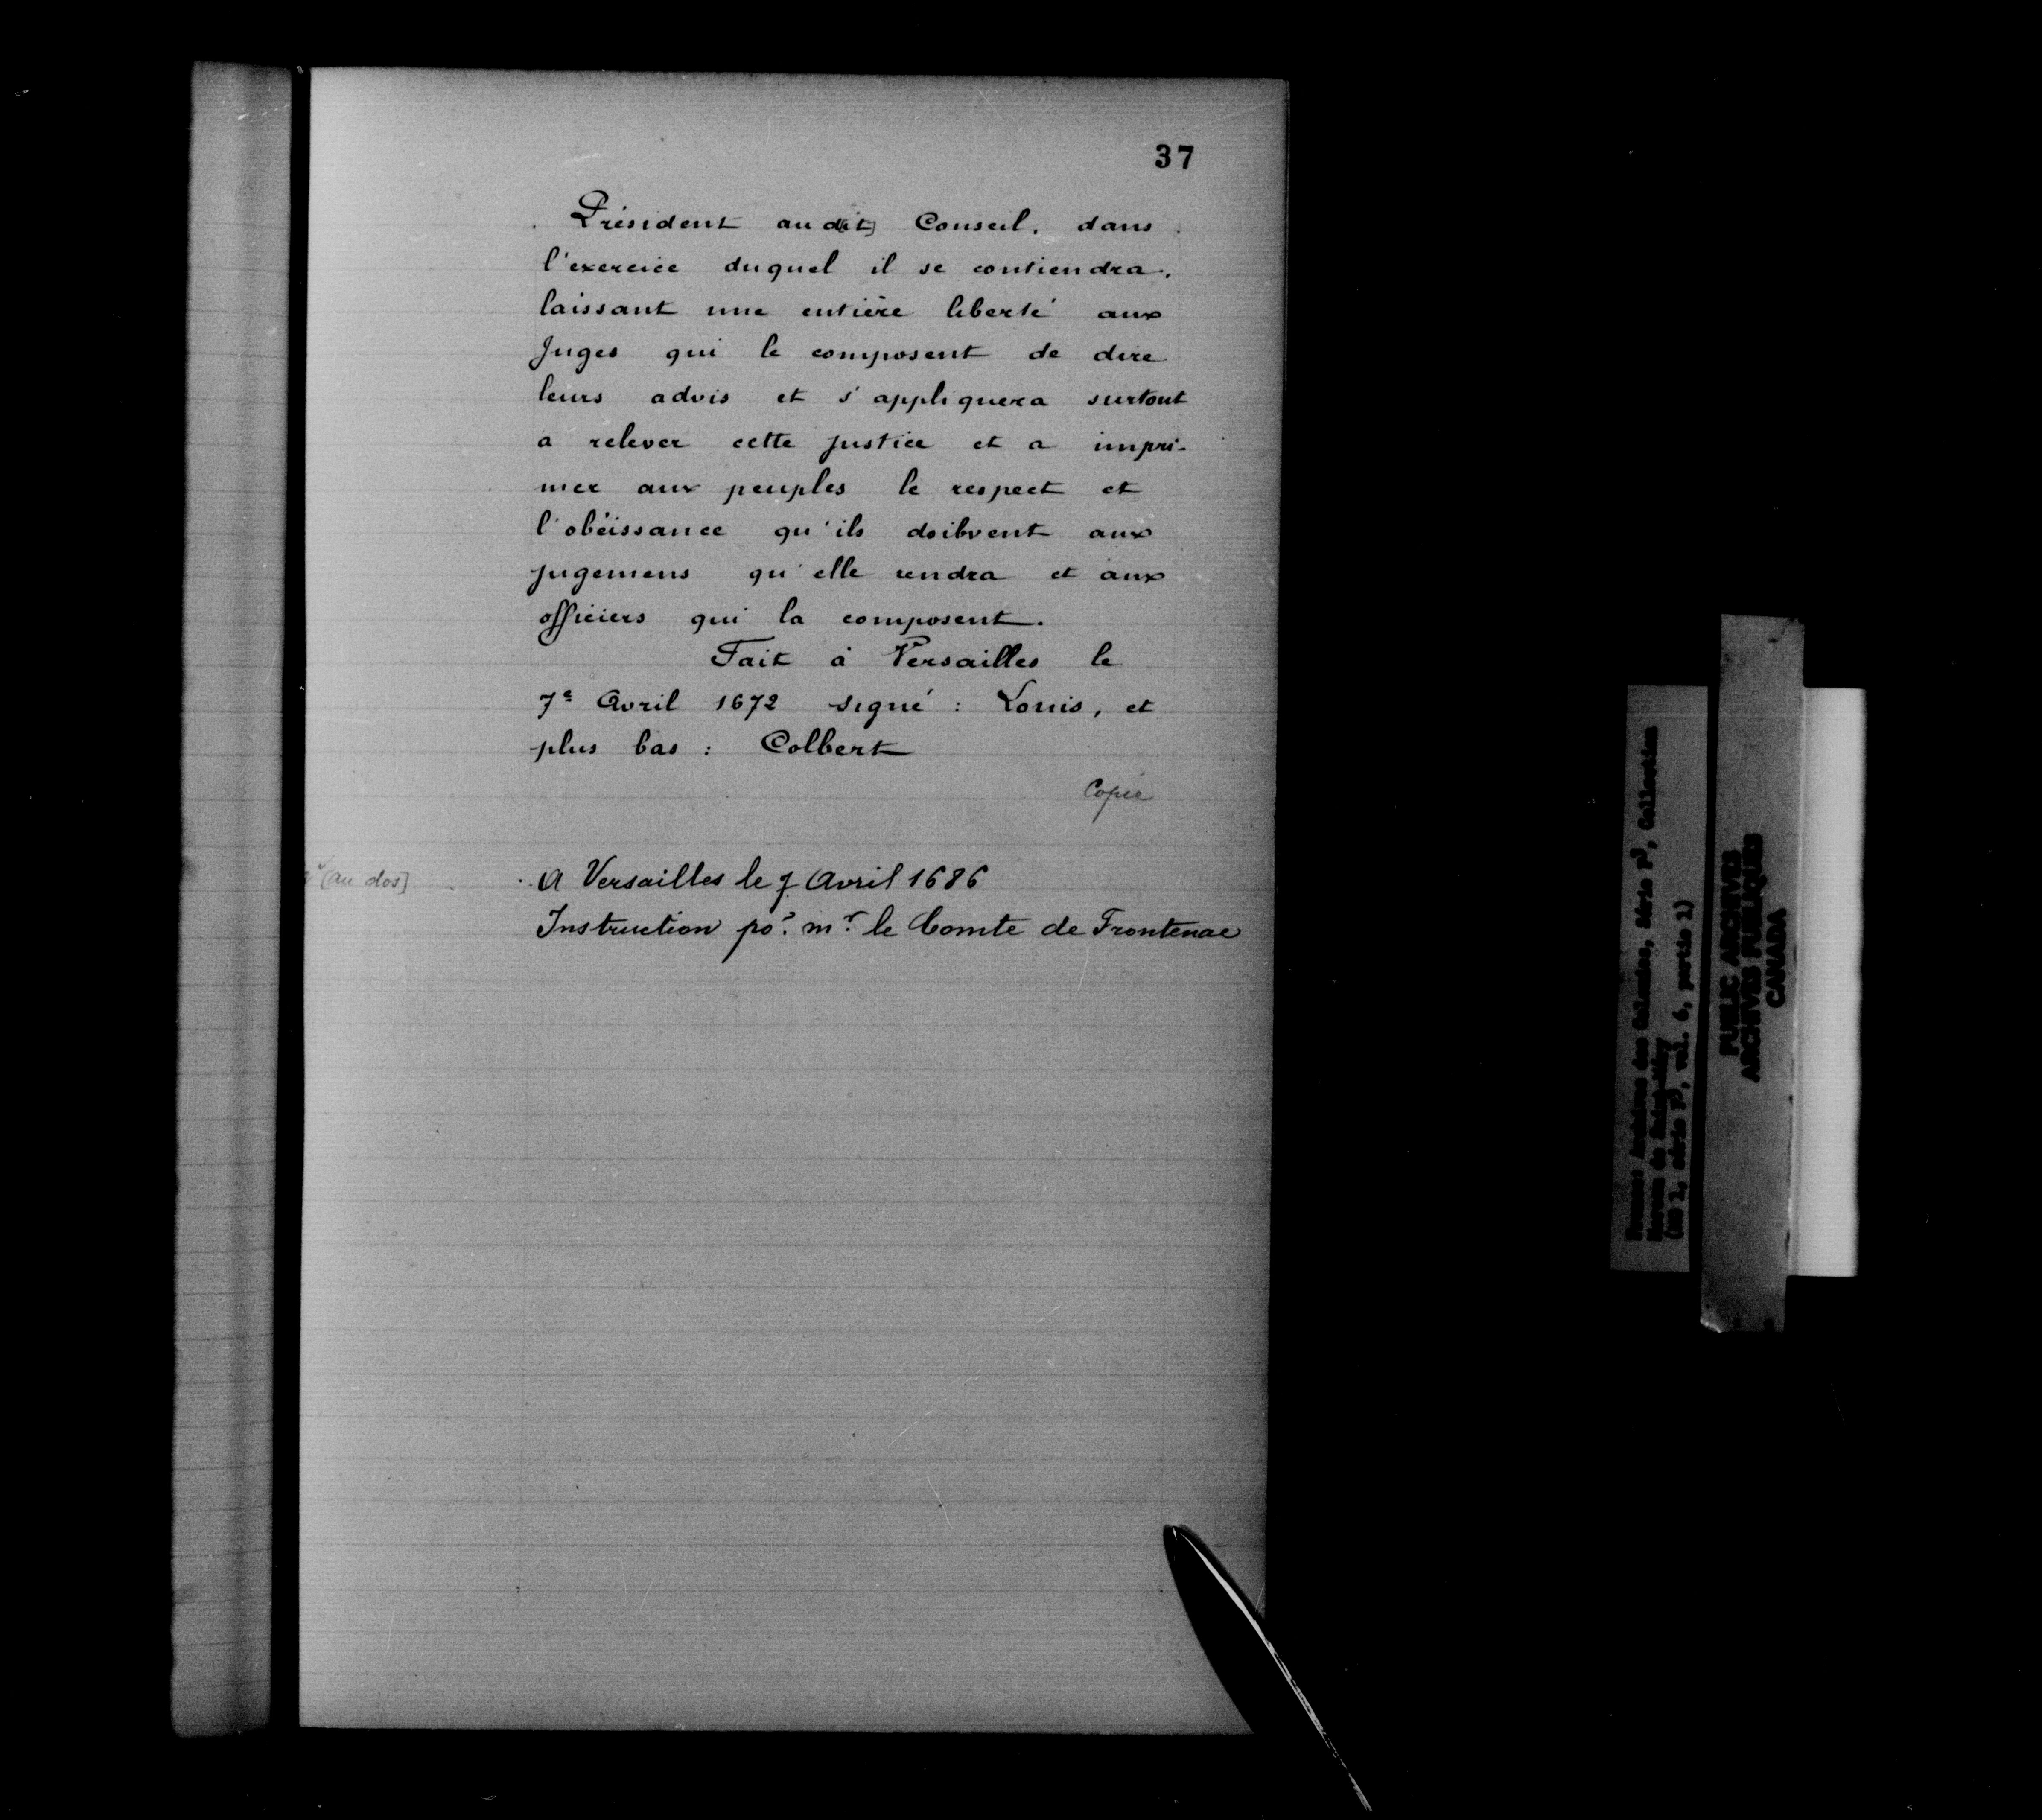 37
Président au d[it] Conseil, dans
l'exercice duquel il se contiendra,
laissant une entière liberté aux
Juges qui le composent de dire
leurs advis et s'appliquera surtout
a relever cette justice et a impri-
mer aux peuples le respect et
l'obéissance qu'ils doibvent aux
jugemens qu'elle rendra et aux
officiers qui la composent.
Fait à Versailles le
7e Avril 1672 signé : Louis, et
plus bas : Colbert
Copie
(au dos]
A Versailles le 7 Avril 1686
Instruction por. mr. le Comte de Frontenac
Archives des Colonies, Série F3, Collection
Moreau de Saint-Méry
(MG 1, série F3, vol. 6, partie 2)
PUBLIC ARCHIVES
ARCHIVES PUBLIQUES
CANADA